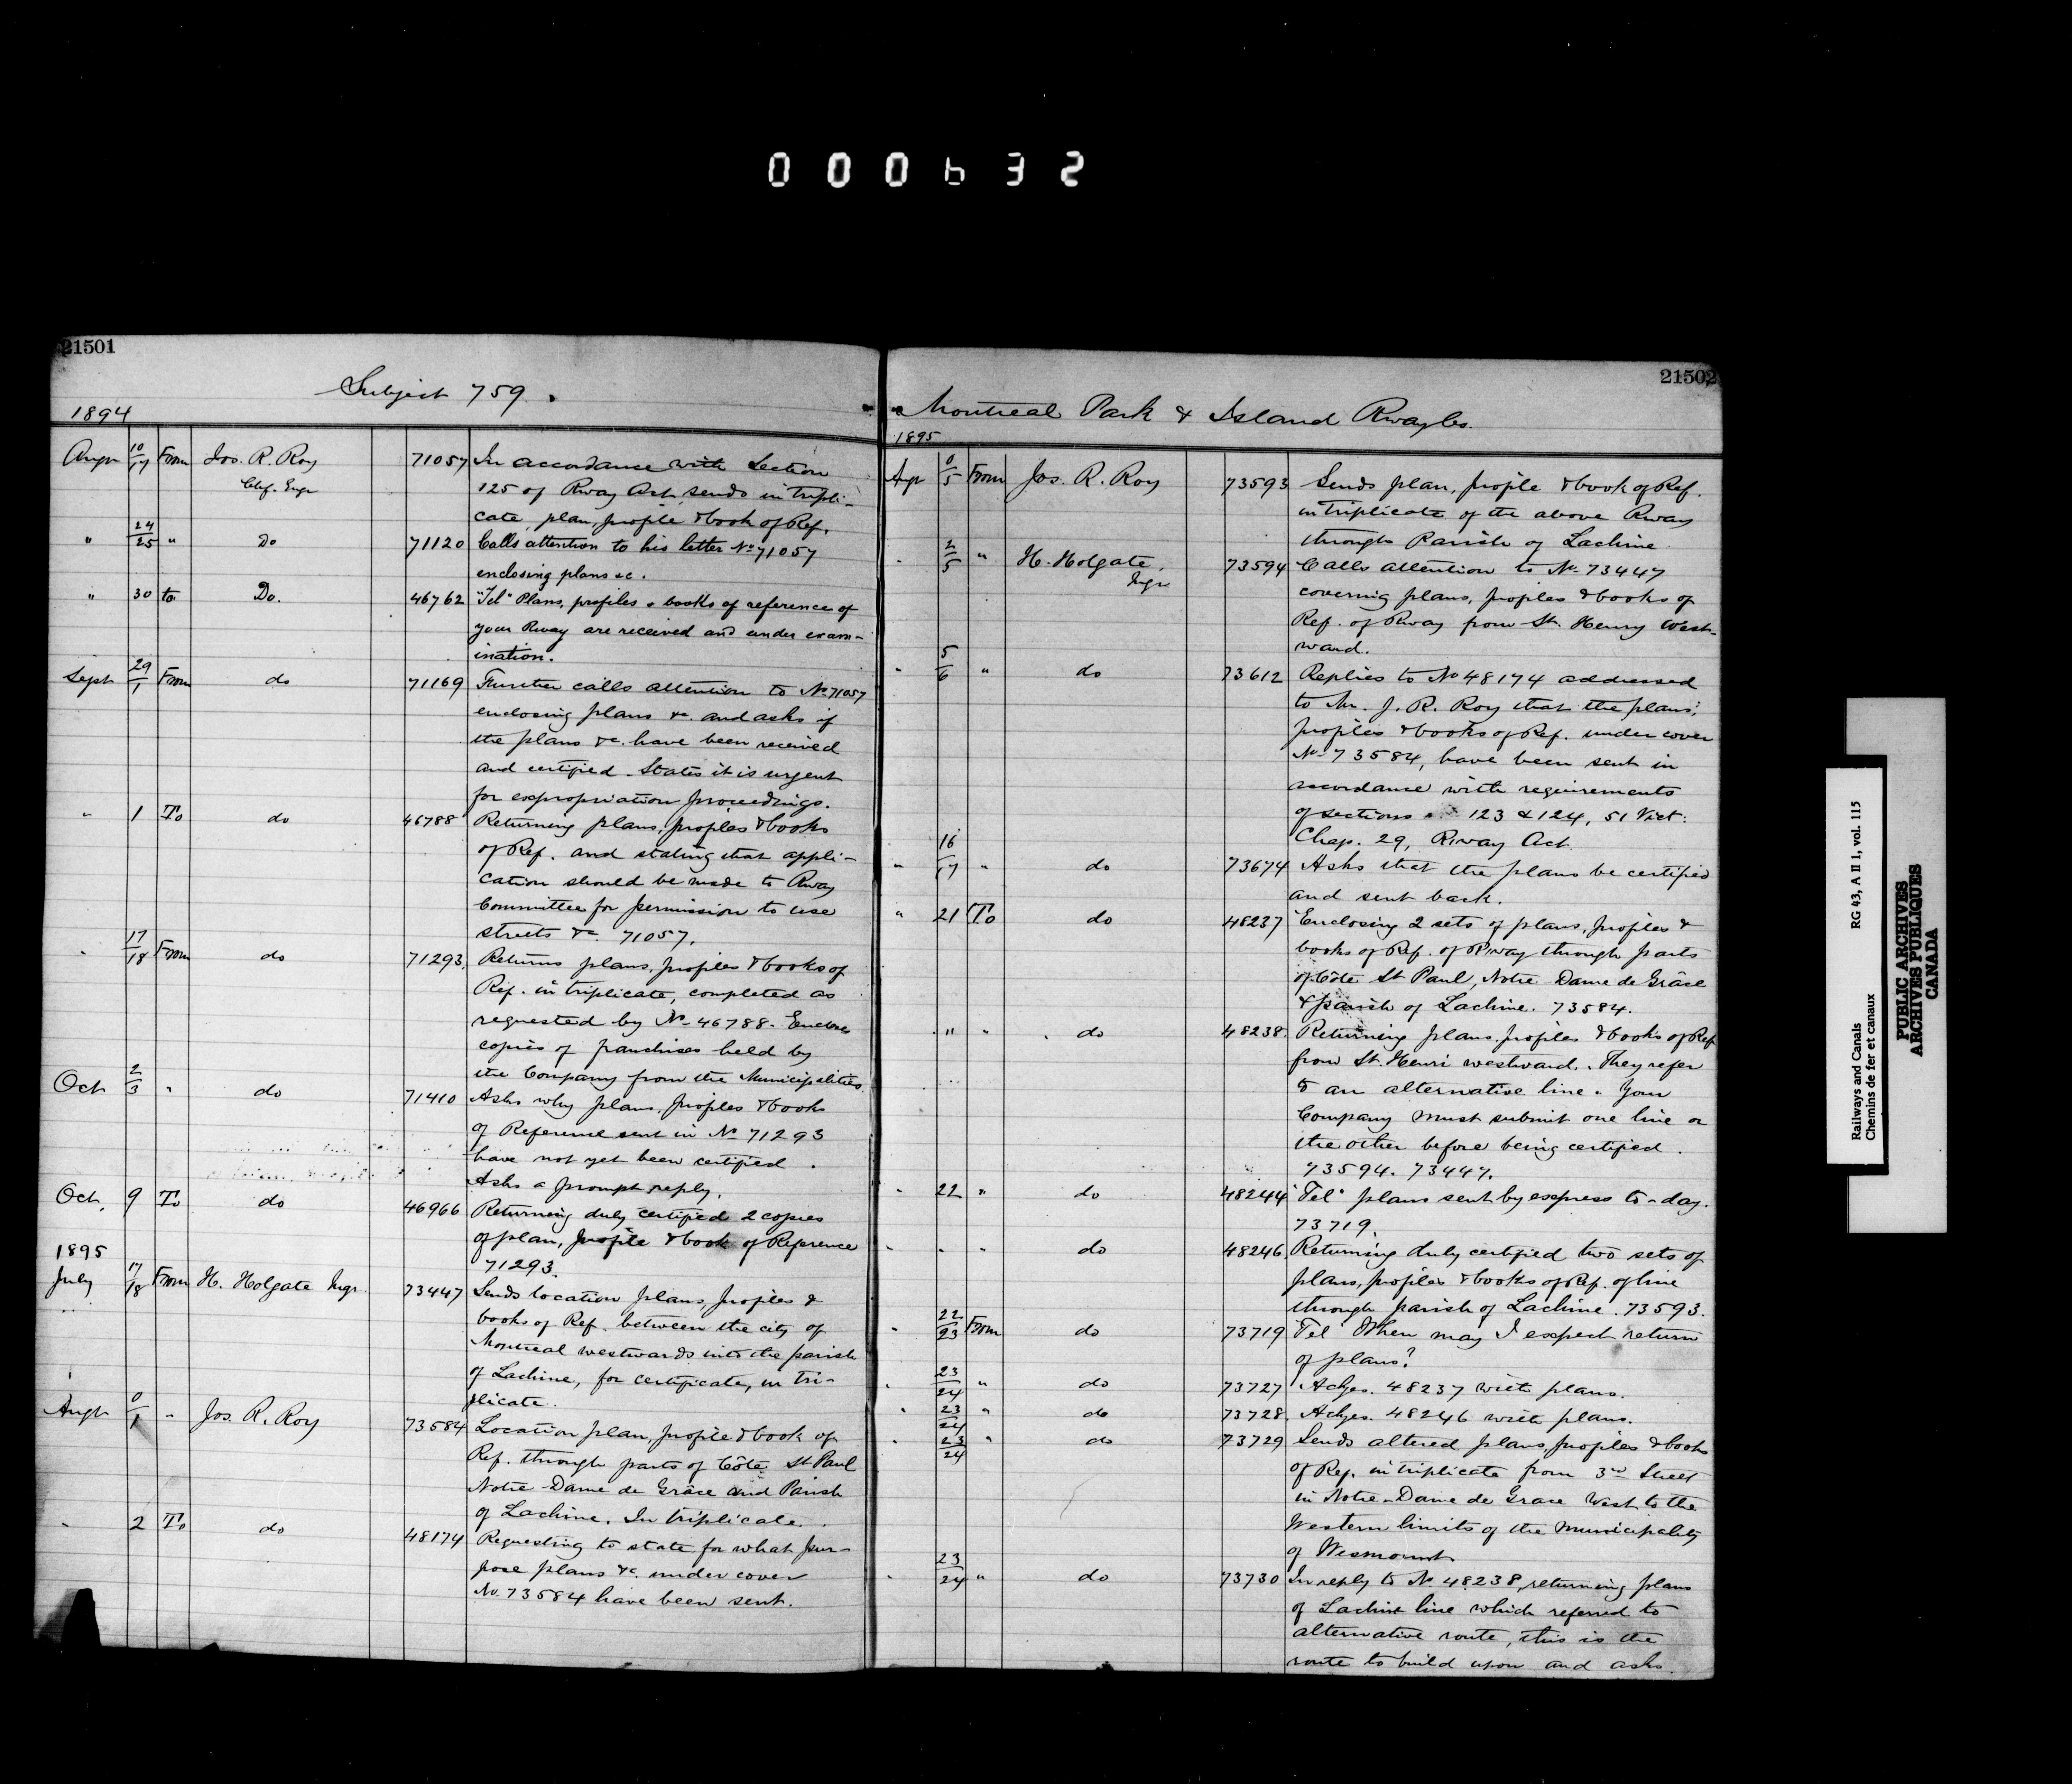 000632
21501
Subject 759.
1894
Augt 10/17 From Jos. R. Roy 71057 In accordance with Section
Chf. Engr 125 of Rway Act, sends in tripli-
cate, plan, profile & book of Ref.
" 24/25 " Do 71120 Calls attention to his letter No 71057
enclosing plans &c.
" 30 to Do. 46762 "Tel" Plans, profiles & books of reference of
your Rway are received and under exam-
ination.
Sept 29/1 From do 71169 Further calls attention to No 71057
enclosing plans &c. and asks if
the plans &c. have been received
and certified. States it is urgent
for expropriation proceedings.
" 1 To do 46788 Returning plans, profiles & books
of Ref. and stating that appli-
cation should be made to Rway
Committee for permission to use
streets &c. 71057.
" 17/18 From do 71293. Returns plans, profiles & books of
Ref. in triplicate, completed as
requested by No 46788. Encloses
copies of franchises held by
the Company from the Municipalities
Oct 2/3 " do 71410 Asks why plans, profiles & books
of Reference sent in No 71293
have not yet been certified.
Asks a prompt reply.
Oct. 9 To do 46966 Returning duly certified 2 copies
of plan, profile & book of Reference
71293.
1895
July 17/18 From H. Holgate Mgr. 73447 Sends location plans, profiles &
books of Ref. between the city of
Montreal westwards into the parish
of Lachine, for certificate, in tri-
plicate.
Augt 0/1 " Jos. R. Roy 73584 Location plan, profile & book of
Ref. through parts of Côte St Paul
Notre Dame de Grâce and Parish
of Lachine. In triplicate.
" 2 To do 48174 Requesting to state for what pur-
pose plans &c. under cover
No. 73584 have been sent.
21502
Montreal Park & Island Rway Co.
1895
Agt 0/5 From Jos. R. Roy 73593 Sends plan, profile & book of Ref.
in triplicate of the above Rway
through Parish of Lachine.
" 2/5 " H. Holgate, Mgr 73594 Calls attention to No. 73447
covering plans, profiles & books of
Ref. of Rway from St. Henry West-
ward.
" 5/6 " do 73612 Replies to No 48174 addressed
to Mr. J. R. Roy that the plans,
profiles & books of Ref. under cover
No 73584, have been sent in
accordance with requirements
of sections 123 & 124, 51 Vict:
Chap. 29, Rway Act
" 16/17 " do 73674 Asks that the plans be certified
and sent back.
" 21 To do 48237 Enclosing 2 sets of plans, profiles &
books of Ref. of Rway through parts
of Côte St Paul, Notre Dame de Grâce
& parish of Lachine. 73584.
" " do 48238. Returning plans, profiles & books of Ref
from St. Henri westward. They refer
to an alternative line. Your
Company must submit one line or
the other before being certified.
73594. 73447.
" 22 " do 48244 "Tel" plans sent by express to-day.
73719.
" " " do 48246. Returning duly certified two sets of
plans, profiles & books of Ref. of line
through parish of Lachine. 73593.
" 22/23 From do 73719 "Tel" When may I expect return
of plans?
" 23/24 " do 73727 Ackges. 48237 with plans.
23/24 " do 73728. Ackges. 48246 with plans.
" 23/24 " do 73729 Sends altered plans, profiles & books
of Ref. in triplicate from 3rd Street
in Notre-Dame de Grace West to the
Western limits of the Municipality
of Wesmount.
" 23/24 " do 73730 In reply to No. 48238, returning plans
of Lachine line which referred to
alternative route, this is the
route to build upon and asks
Railways and Canals RG 43, A II 1, vol. 115
Chemins de fer et canaux
PUBLIC ARCHIVES
ARCHIVES PUBLIQUES
CANADA